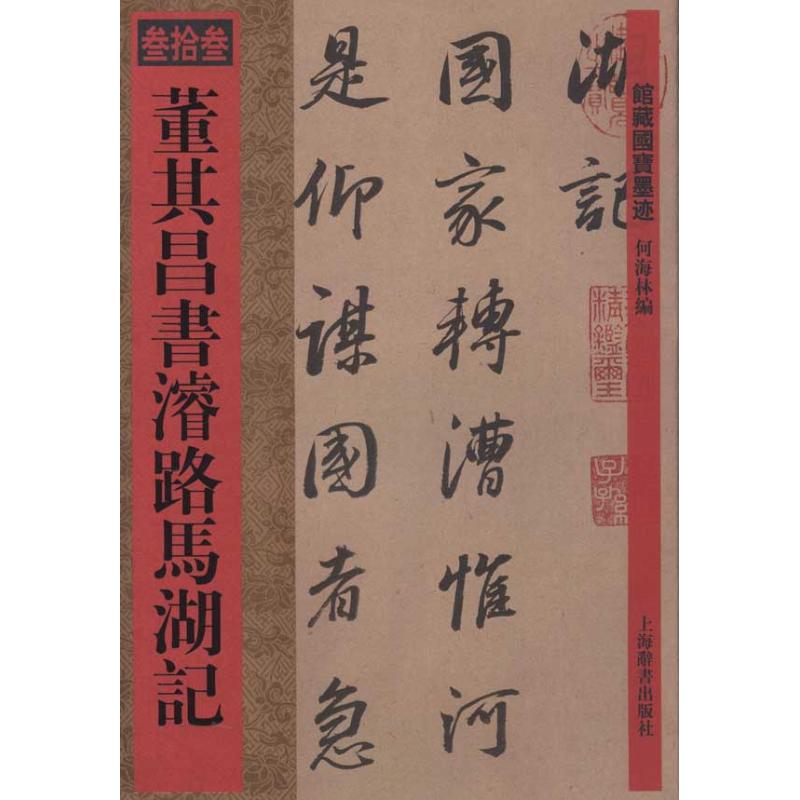 叁拾叁
董其昌書濬路馬湖記
湖記
國家轉漕惟河
是仰謀國者急
館藏國寶墨迹
何海林編
上海辭書出版社